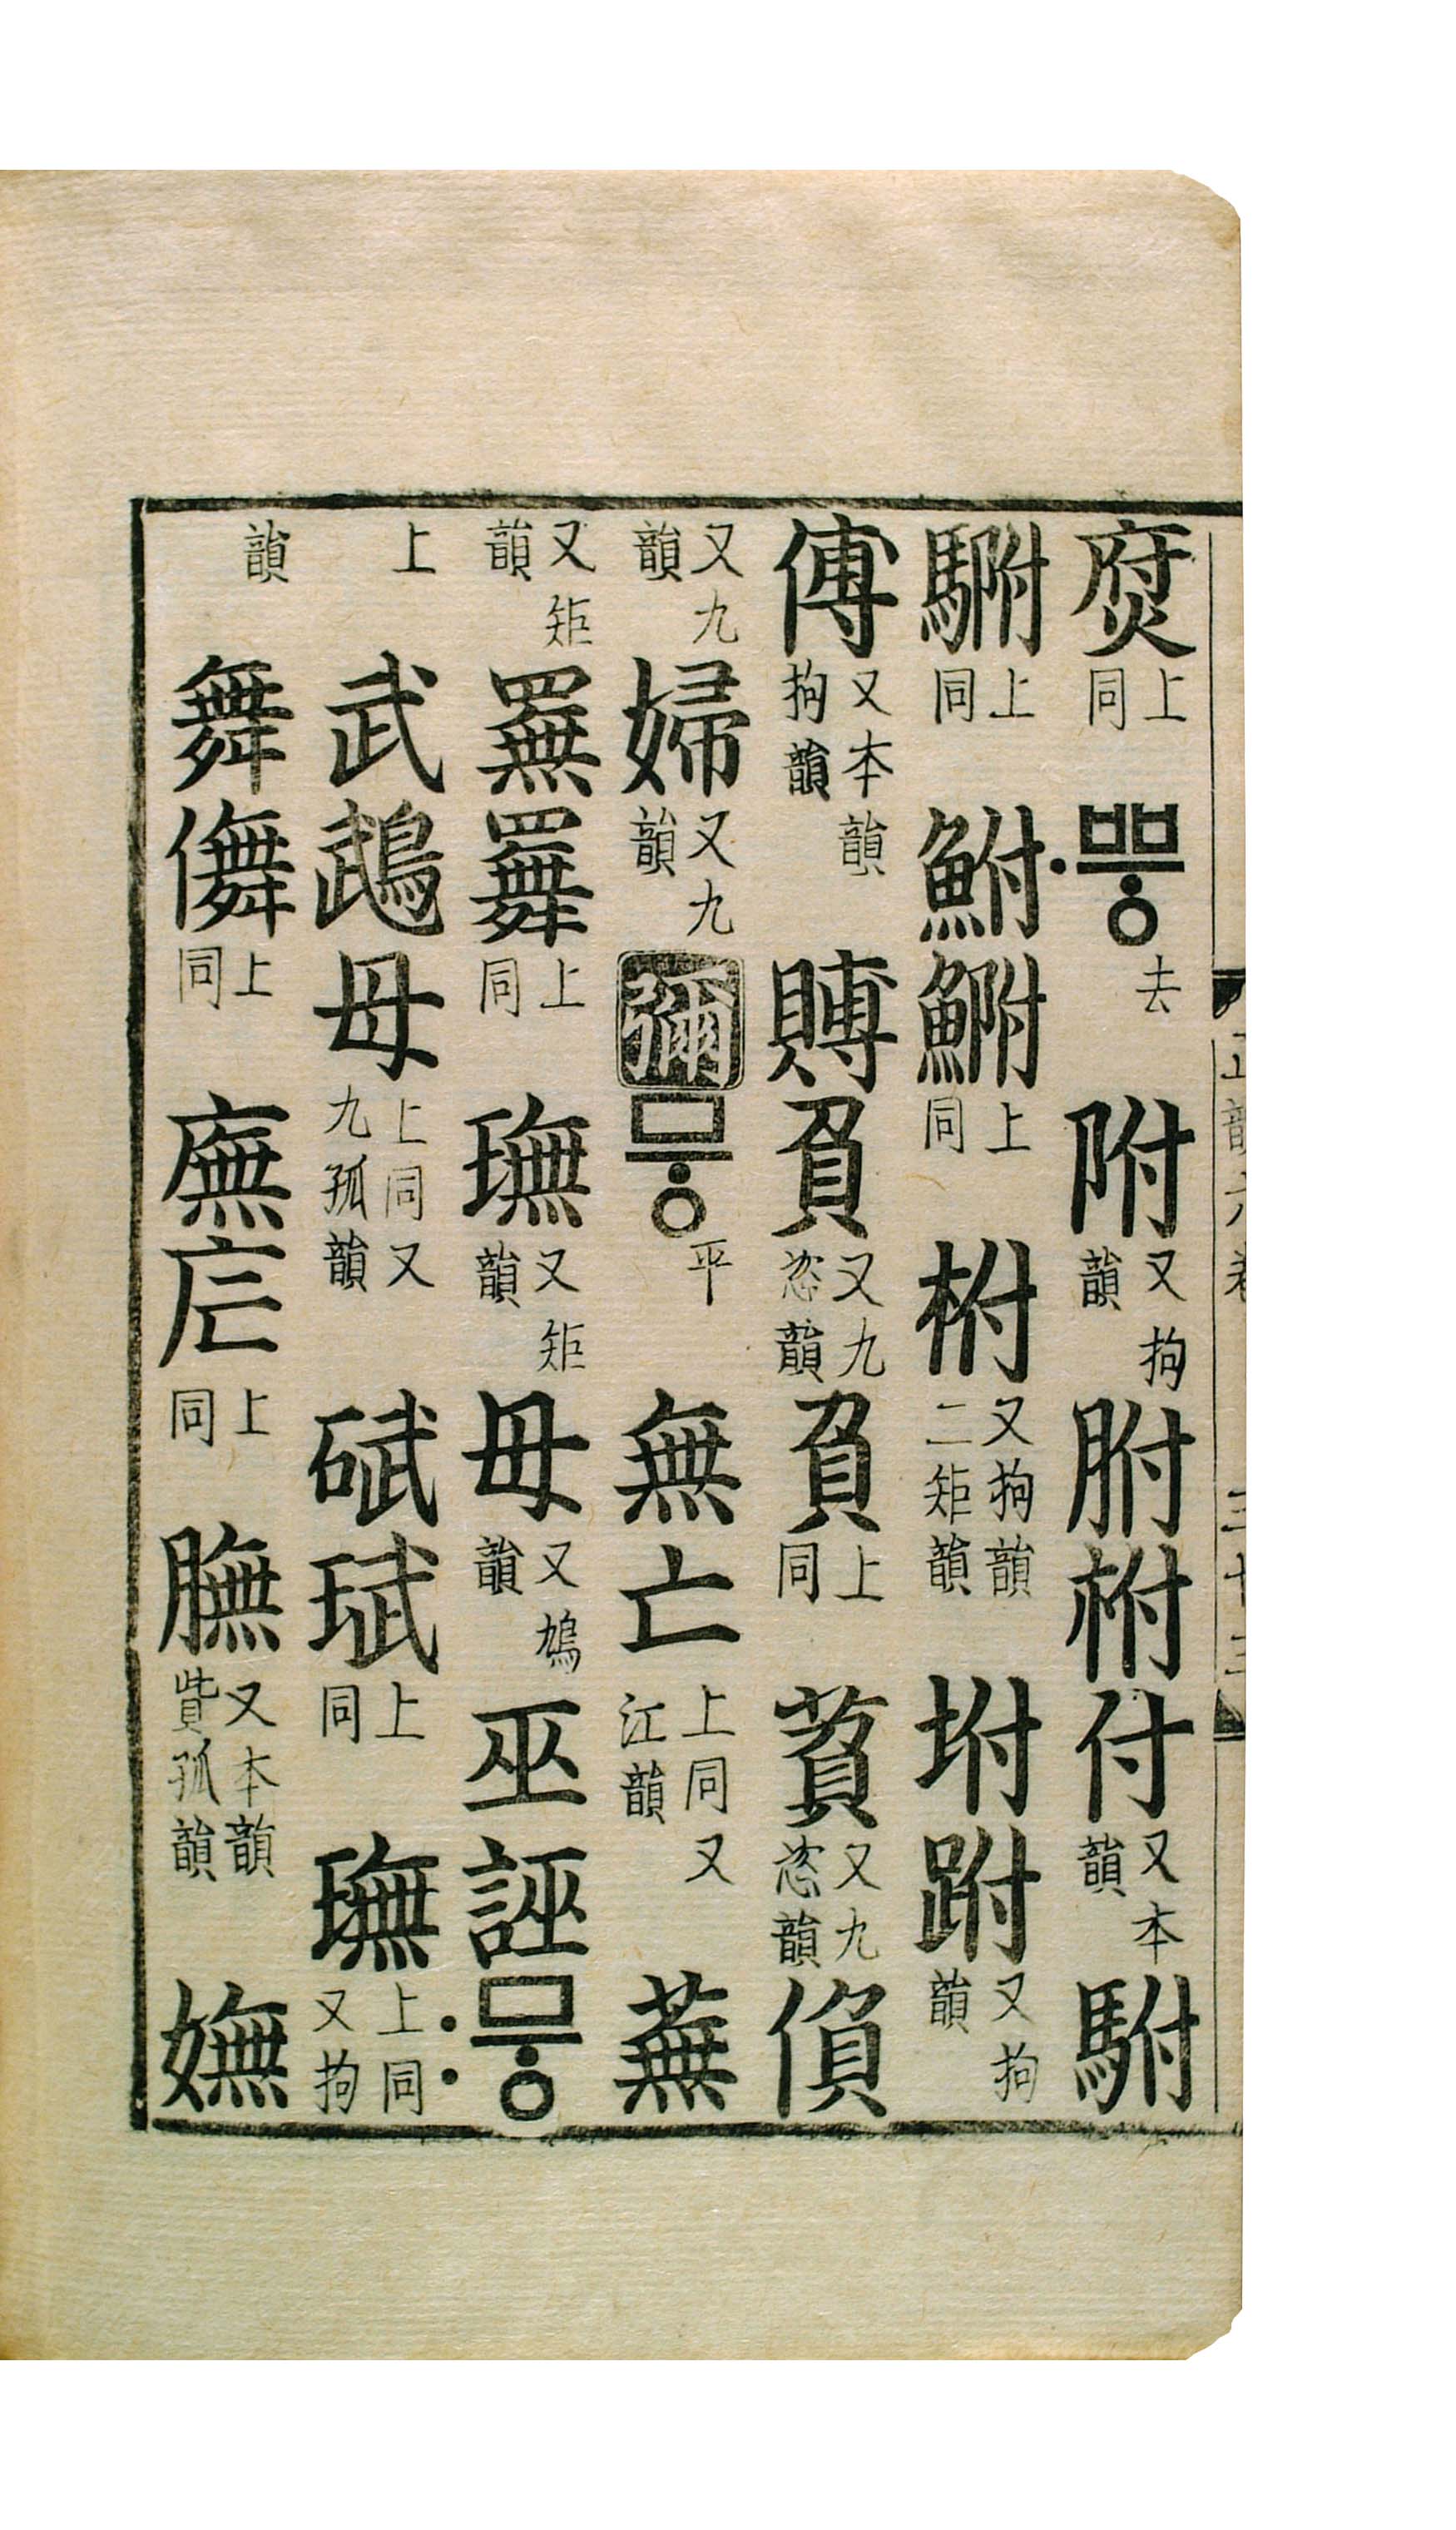 上同 ·뿡去 附又拘韻 胕 柎 付又本韻 駙
上同 鮒 上同 柎又拘韻二矩韻 坿 跗又拘韻
傅又本韻拘韻 賻 負又九恣韻 負上同 萯又九恣韻 偩
又九韻 婦又九韻 彌 뭉平 無 亡上同又江韻 蕪
又矩韻 䍢 上同 璑又矩韻 毋又鳩韻 巫 誣 :뭉
上 武 鵡 母上同又九孤韻 碔 珷上同 璑上同又拘
韻 舞 儛上同 廡 庑上同 膴又本韻貲孤韻 嫵